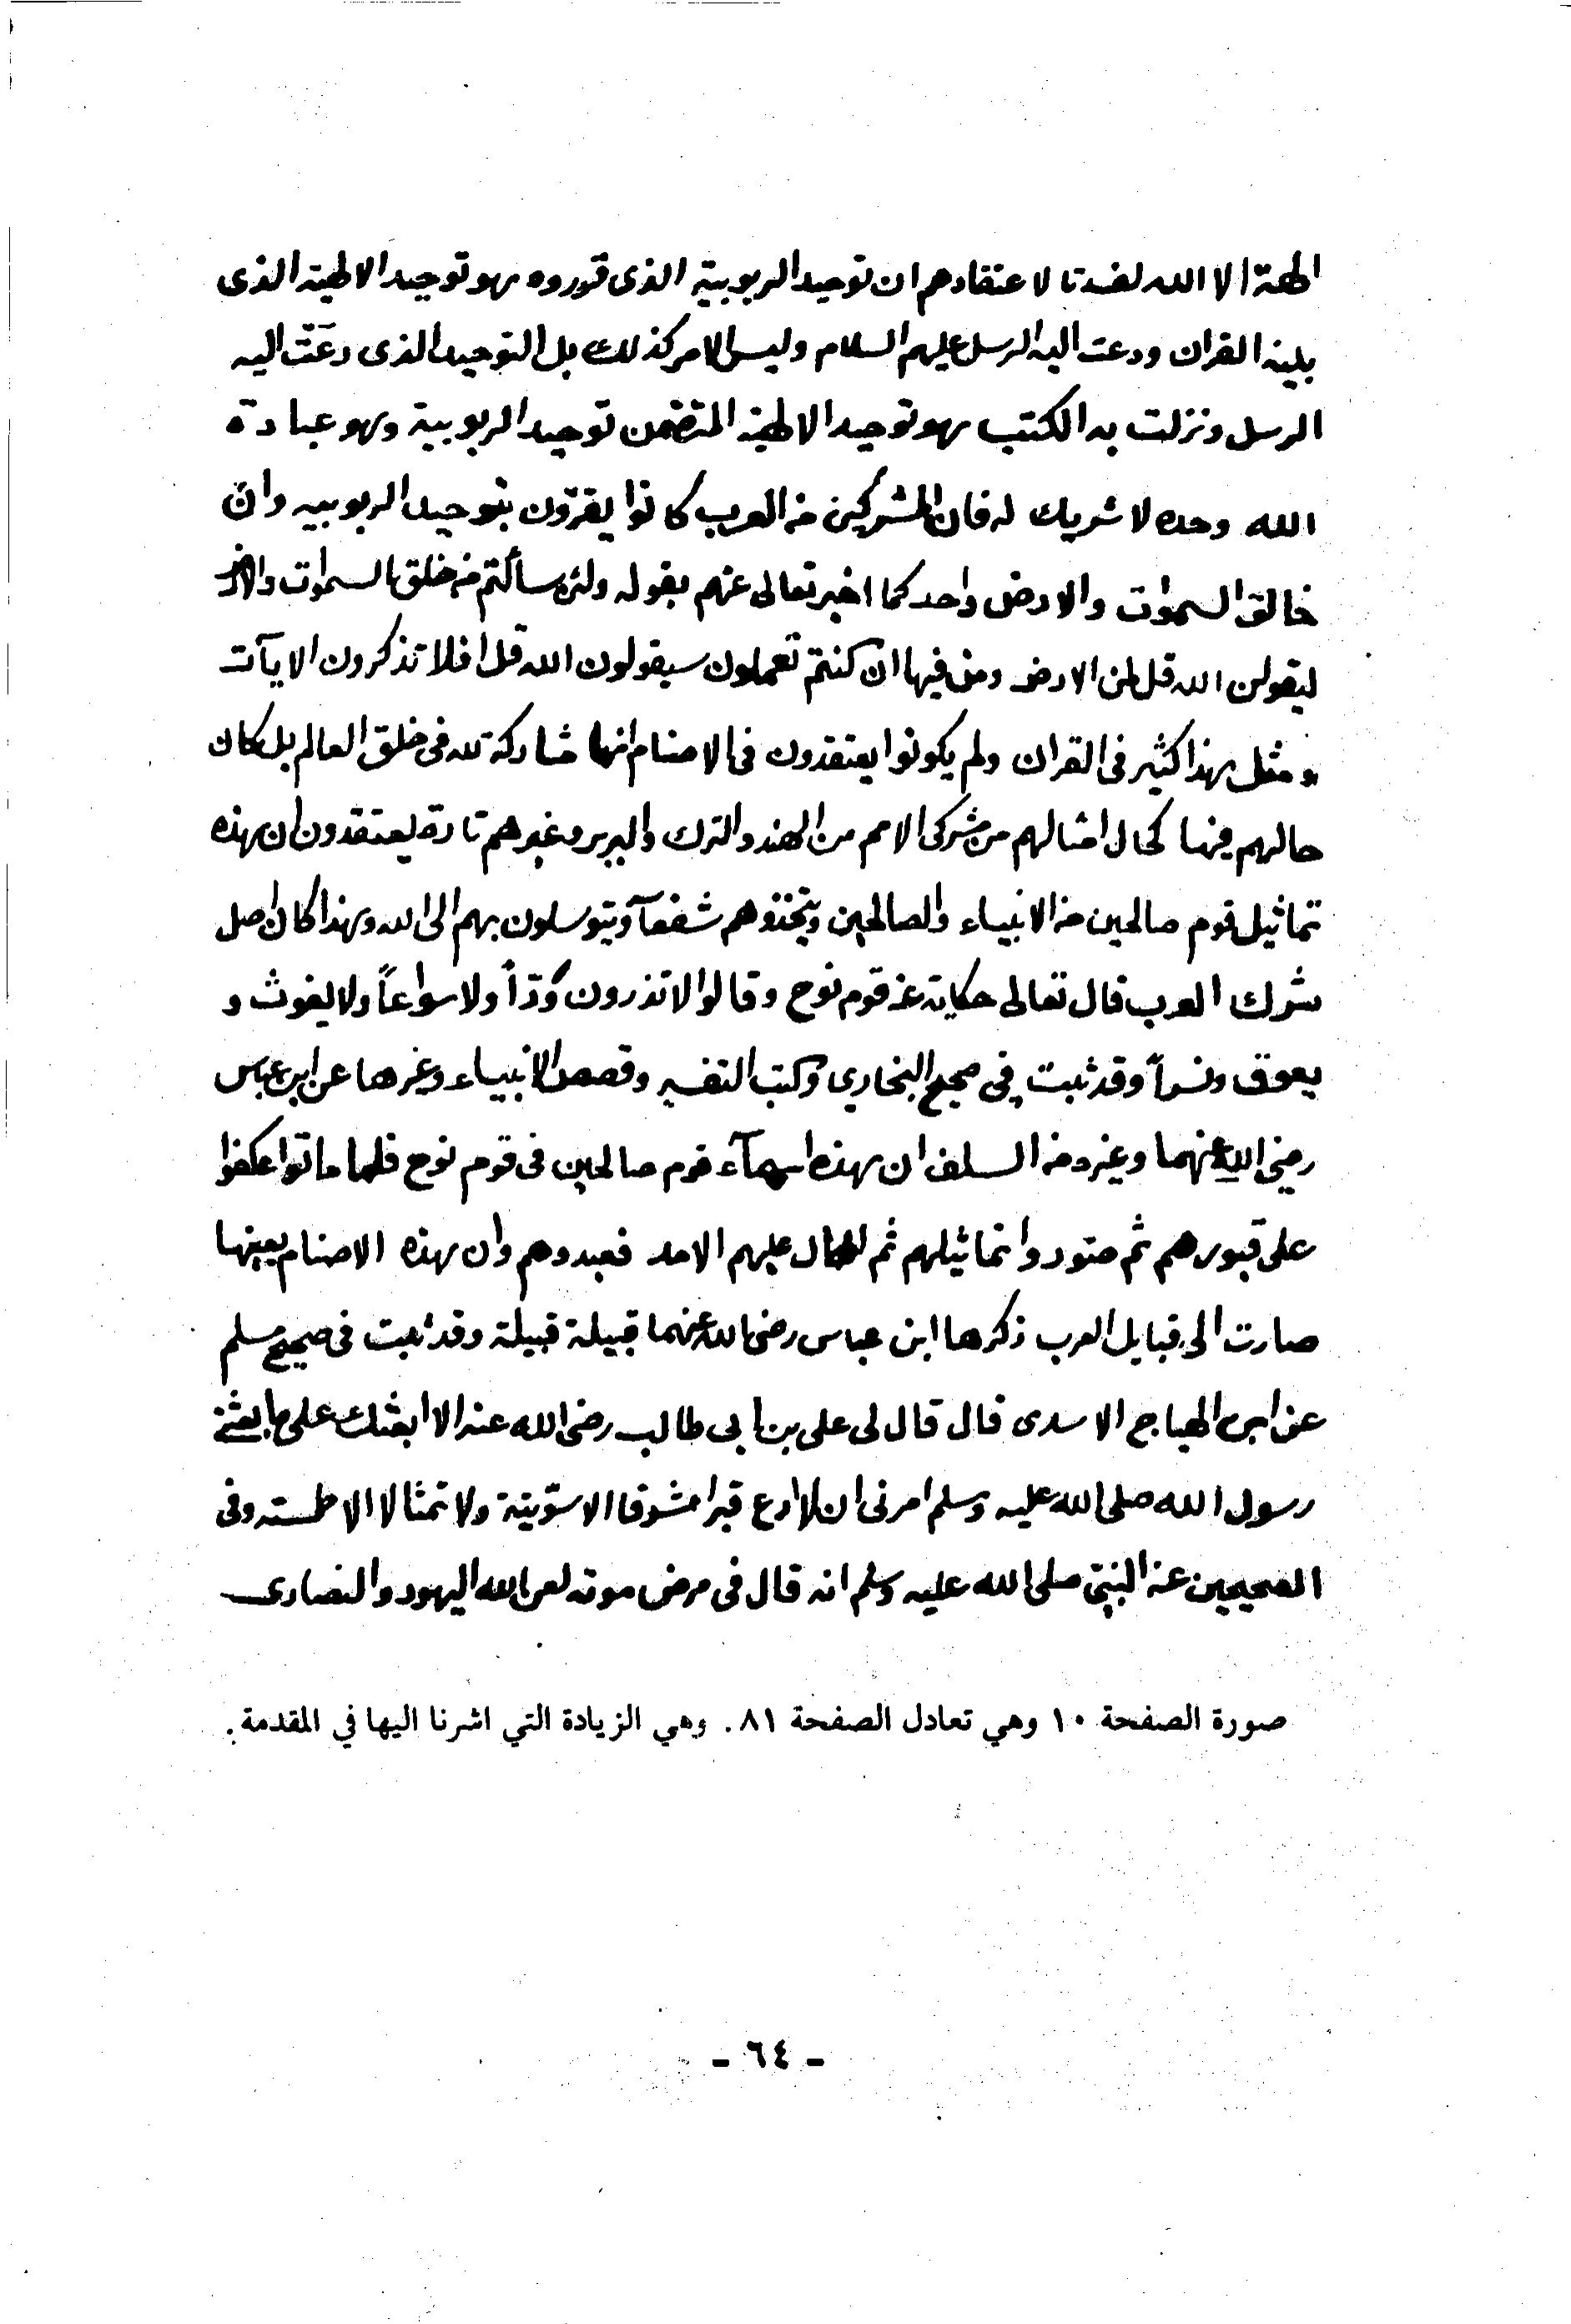 الهة الا الله لفسدتا لاعتقادهم ان توحيد الربوبية الذى قرروه هو توحيد الالهية الذى
بينه القران ودعت اليه الرسل عليهم السلام وليس الامر كذلك بل التوحيد الذى دعَت اليه
الرسل ونزلت به الكتب هو توحيد الالهية المتضمن توحيد الربوبية وهو عبادة
الله وحده لا شريك له فان المشركين من العرب كانوا يقرّون بتوحيد الربوبيه وانّ
خالق السموات والارض واحد كما اخبر تعالى عنهم بقوله ولئن سألتم من خلق السموات والارض
ليقولن الله قل لمن الارض ومن فيها ان كنتم تعملون سيقولون الله قل افلا تذكرون الايآت
ومثل هذا كثير فى القران ولم يكونوا يعتقدون فى الاصنام انها مشاركة لله فى خلق العالم بل كان
حالهم فيها كحال امثالهم من مشركى الامم من الهند والترك والبربر وغيرهم تارة يعتقدون ان هذه
تماثيل قوم صالحين من الانبياء والصالحين ويتخذوهم شفعآ ويتوسلون بهم الى الله وهذا كان اصل
شرك العرب قال تعالى حكاية عن قوم نوح وقالوا لا تذرون ودّاً ولا سواعاً ولا يغوث و
يعوق ونسراً وقد ثبت فى صحيح البخاري وكتب التفسير وقصص الانبياء وغيرها عن ابن عباس
رضى الله عنهما وغيره من السلف ان هذه اسمآء قوم صالحين فى قوم نوح فلما ماتوا عكفوا
على قبورهم ثم صوروا تماثيلهم ثم طال عليهم الامد فعبدوهم وان هذه الاصنام بعينها
صارت الى قبايل العرب ذكرها ابن عباس رضى الله عنهما قبيلة قبيلة وقد ثبت فى صحيح مسلم
عن ابى الهياج الاسدى قال قال لى على بن ابى طالب رضى الله عنه الا ابعثك على ما بعثنى
رسول الله صلى الله عليه وسلم امرنى ان لا ادع قبرا مشرفا الا سوّيته ولا تمثالا الا طمسته وفى
الصحيحين عن النبيّ صلى الله عليه وسلم انه قال فى مرض موته لعن الله اليهود والنصارى
صورة الصفحة ١٠ وهي تعادل الصفحة ٨١. وهي الزيادة التي اشرنا اليها في المقدمة.
- ٦٤ -